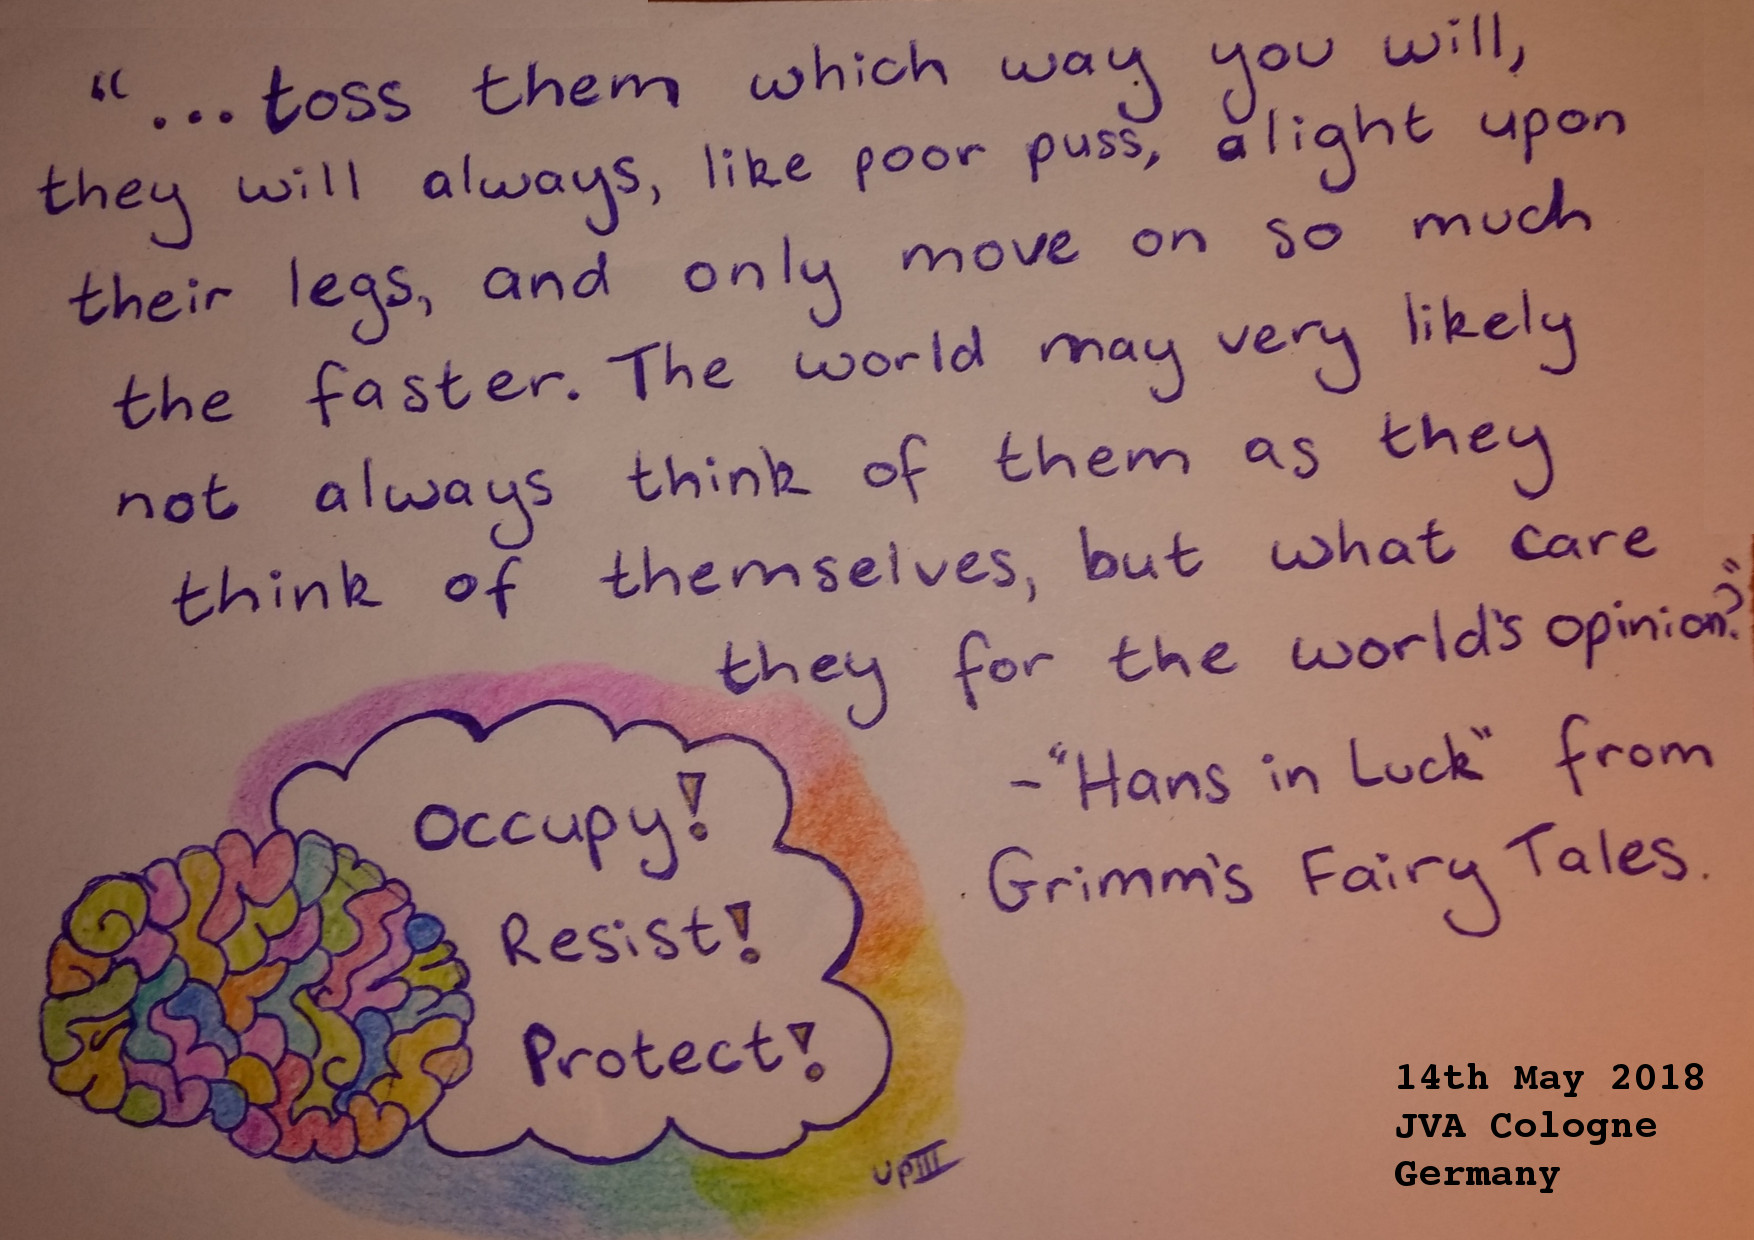 "...toss them which way you will,
they will always, like poor puss, alight upon
their legs, and only move on so much
the faster. The world may very likely
not always think of them as they
think of themselves, but what care
they for the world's opinion?"
-"Hans in Luck" from
Grimm's Fairy Tales.
Occupy!
Resist!
Protect!
UPIII
14th May 2018
JVA Cologne
Germany